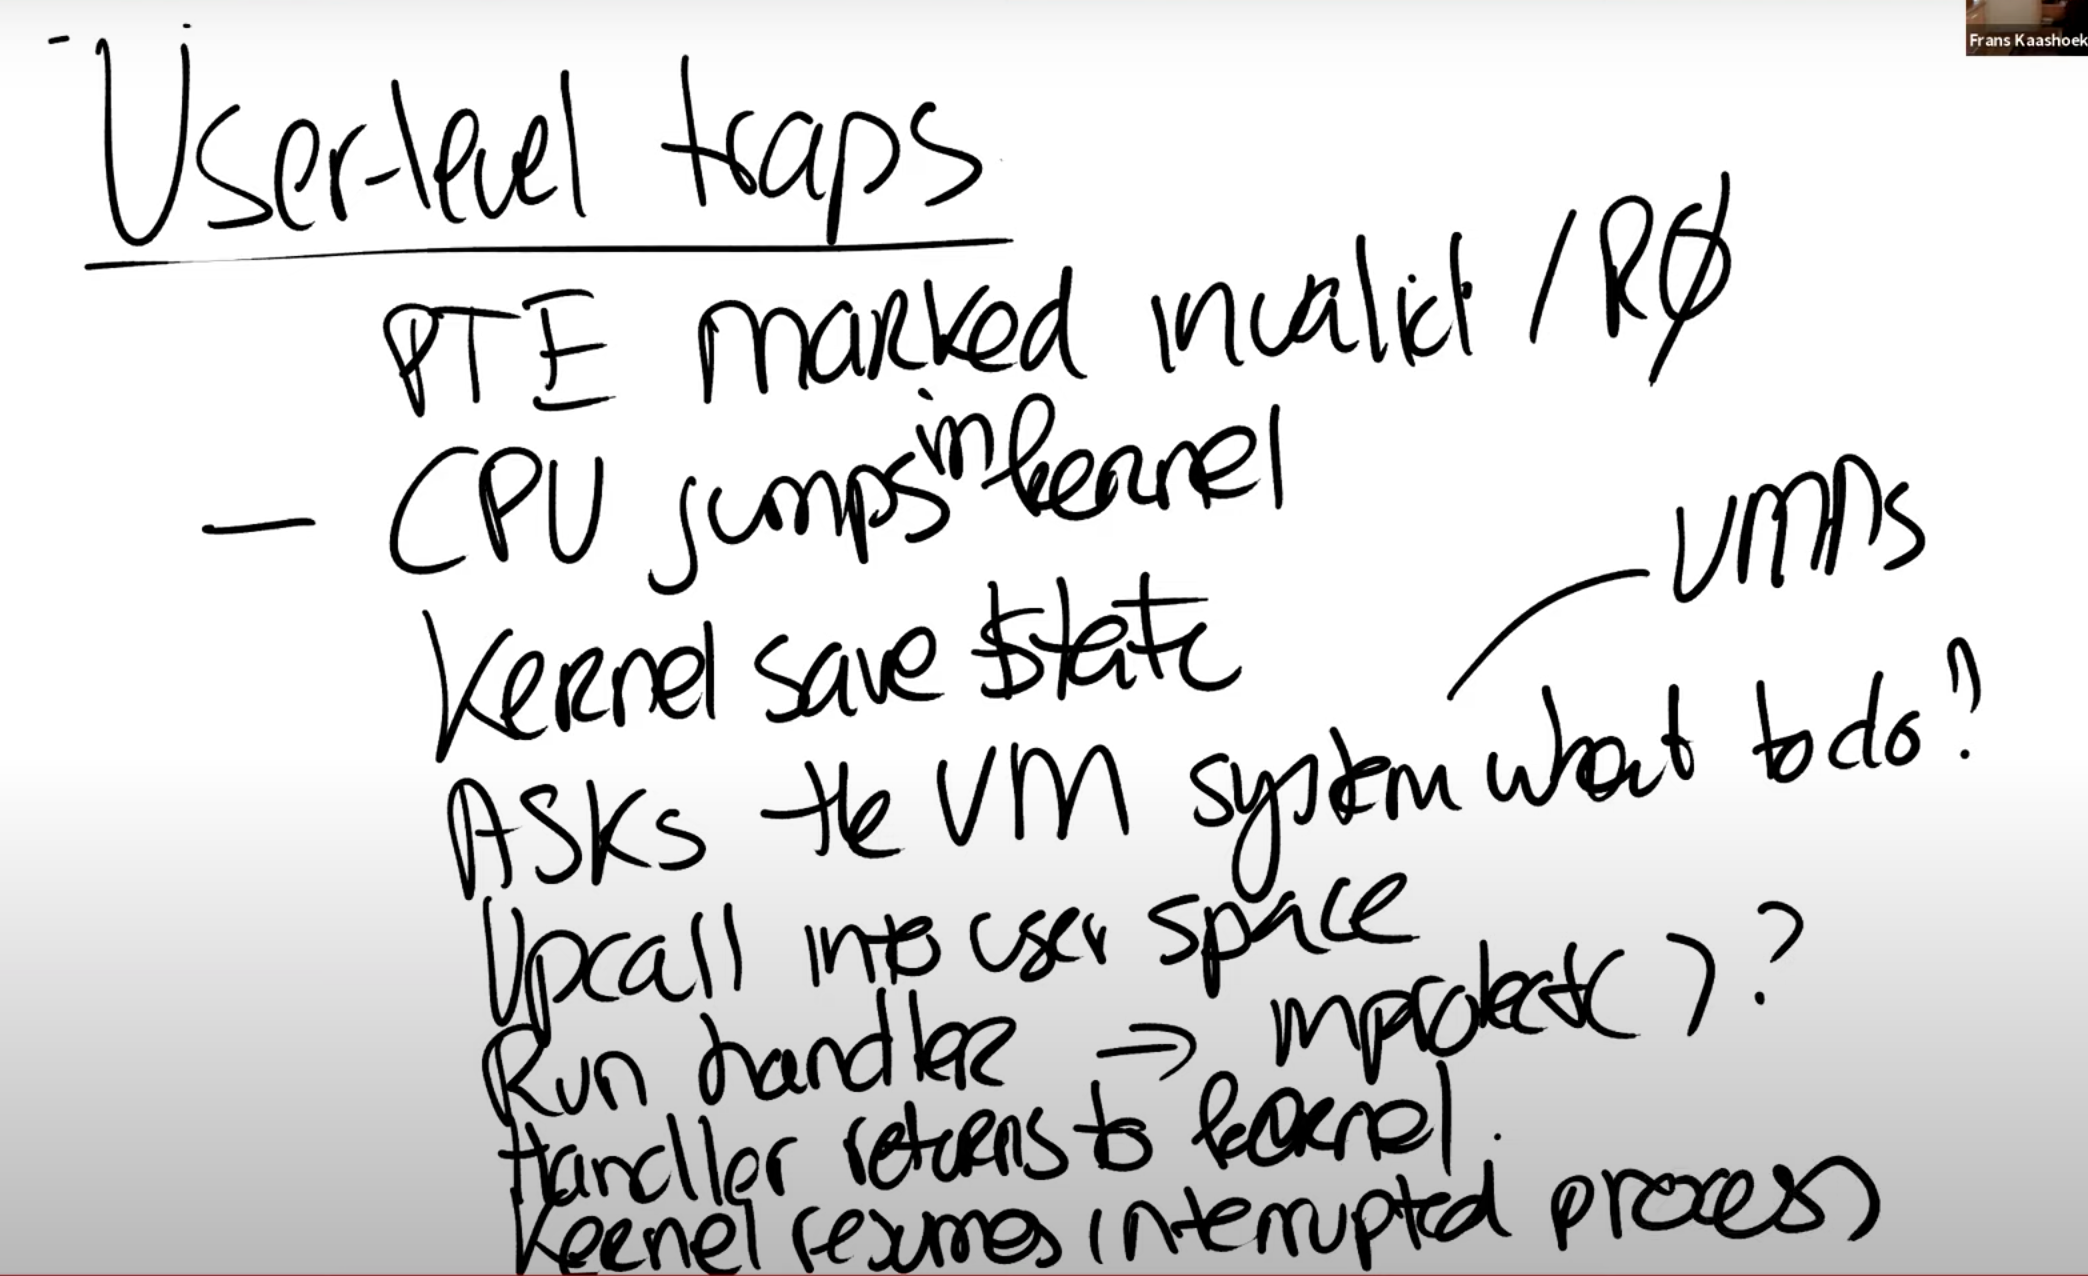 Frans Kaashoek
User-level traps
PTE marked invalid / RO
— CPU jumps in kernel
VMAs
Kernel save state
Asks the VM system what to do?
Upcall into user space
Run handler => mprotect( ) ?
Handler returns to kernel
Kernel resumes interrupted process